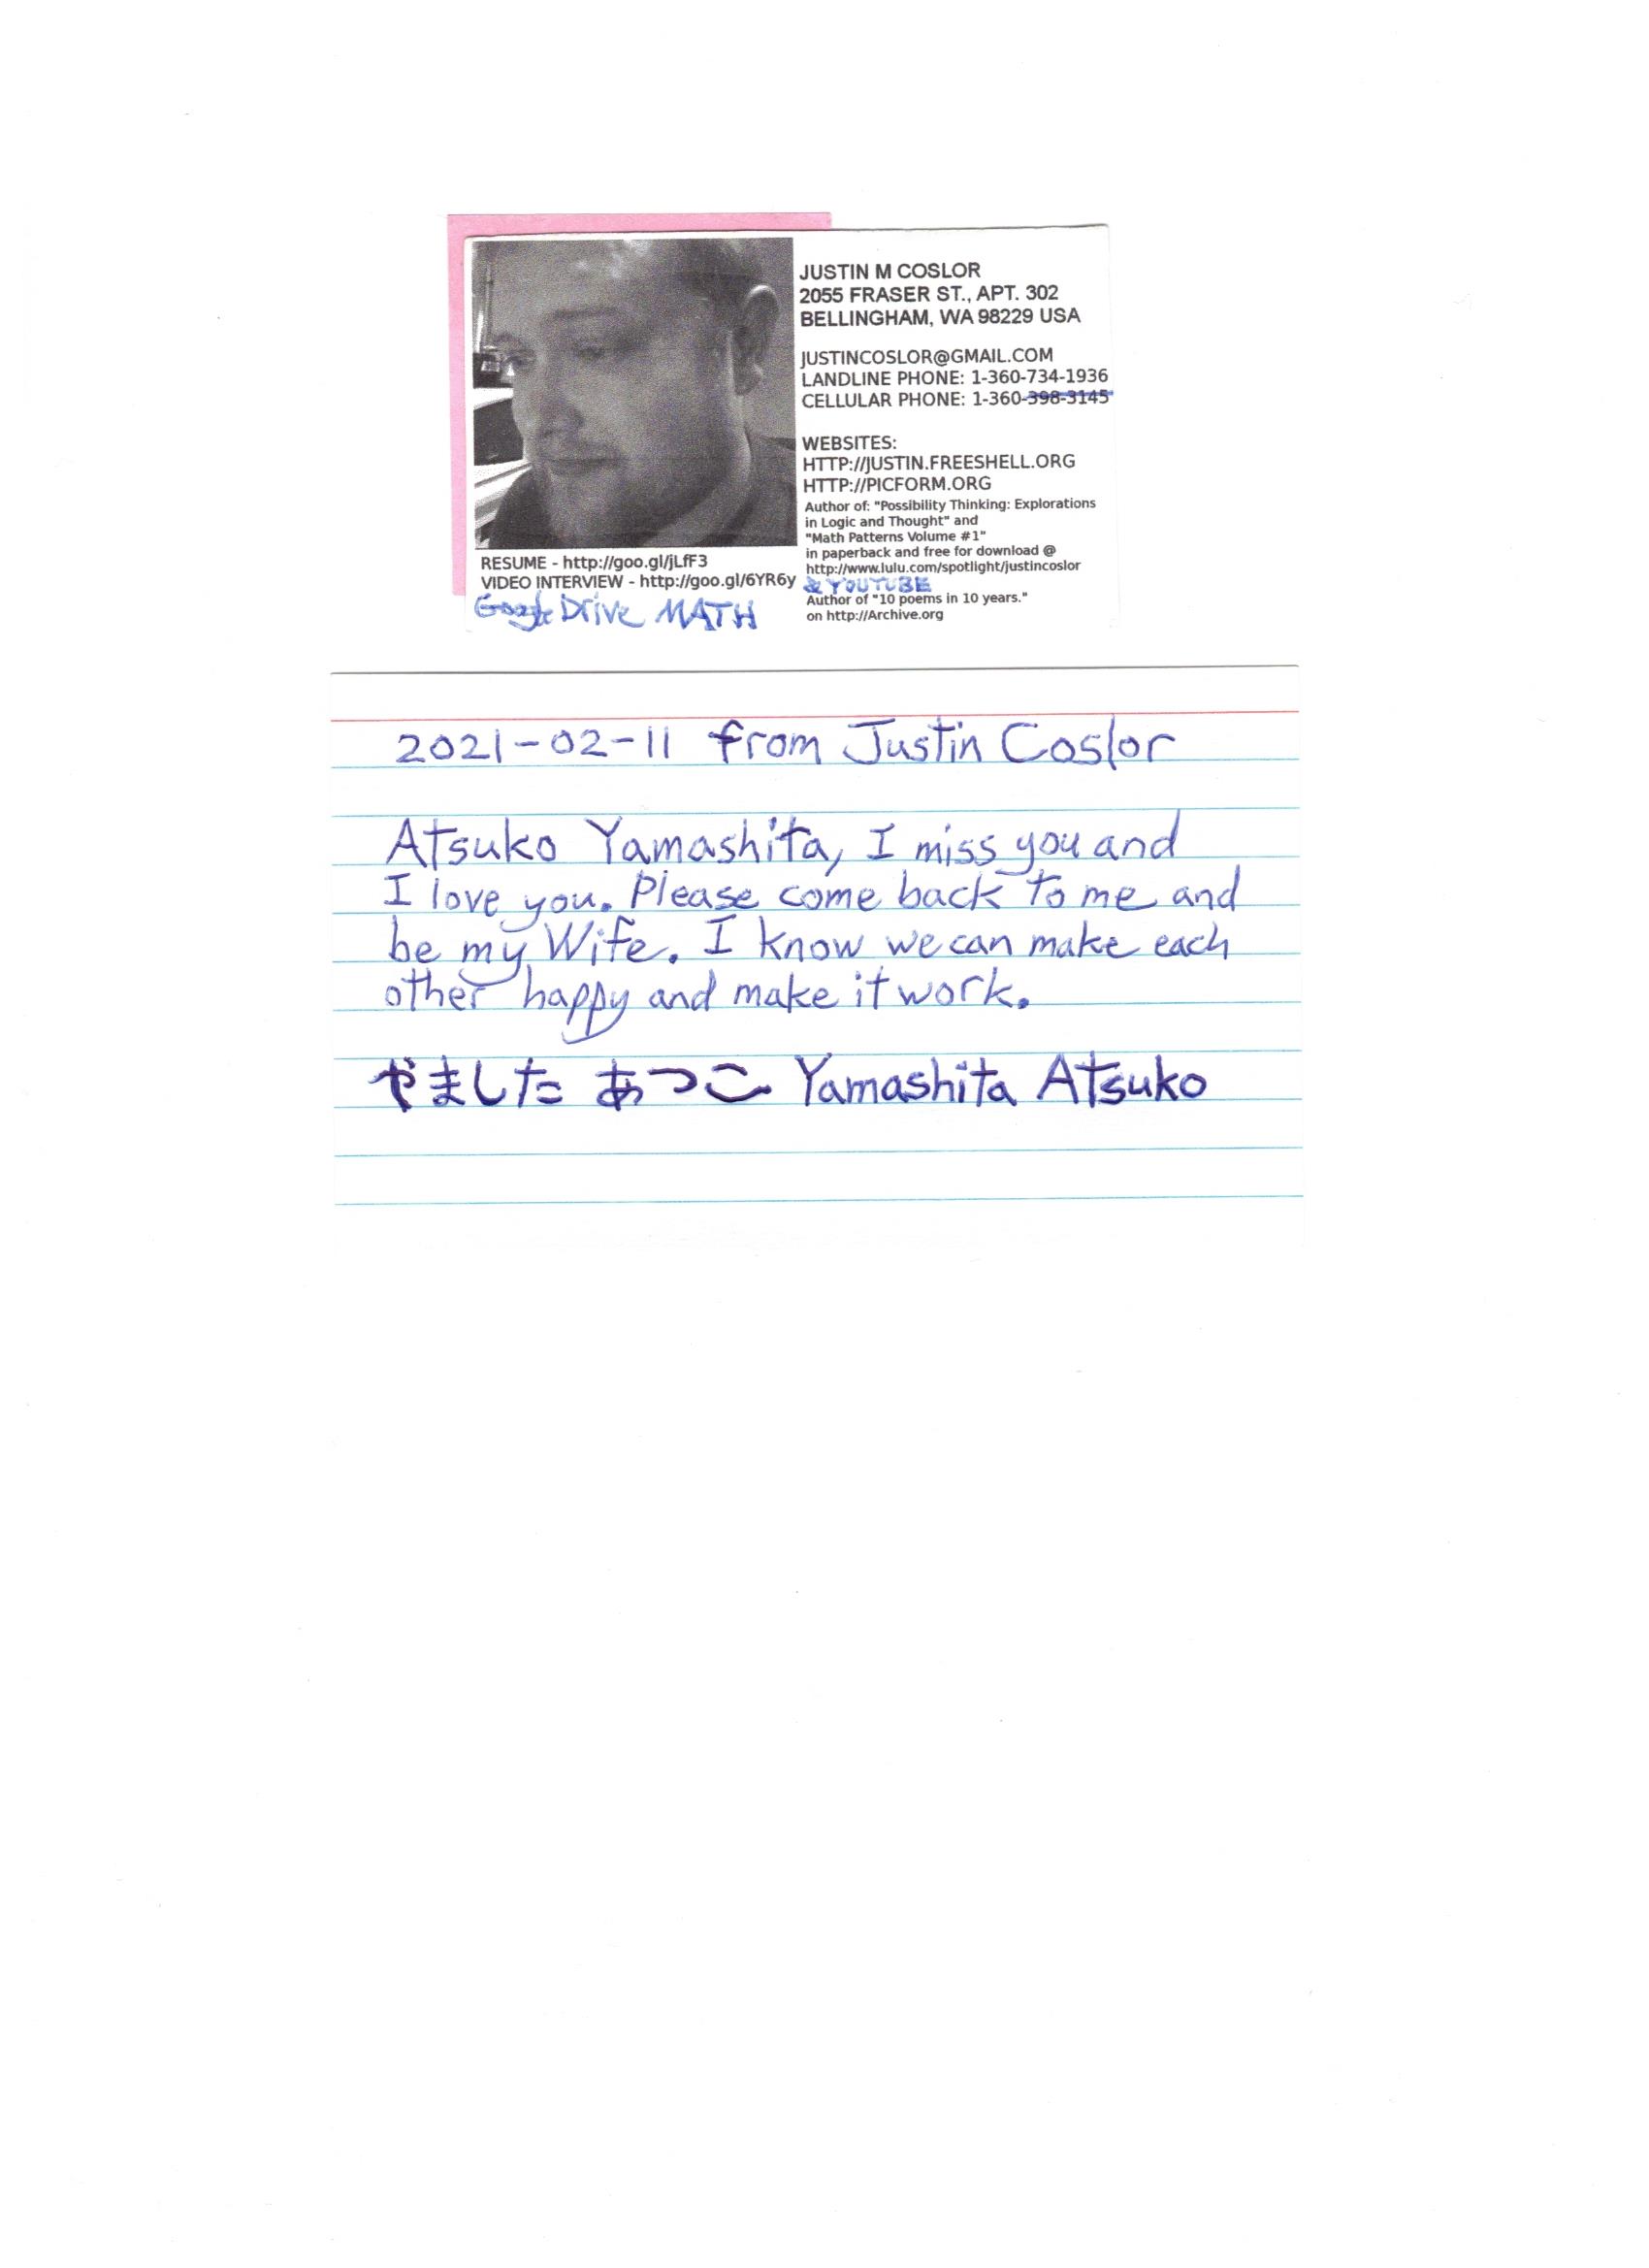 JUSTIN M COSLOR
2055 FRASER ST., APT. 302
BELLINGHAM, WA 98229 USA
JUSTINCOSLOR@GMAIL.COM
LANDLINE PHONE: 1-360-734-1936
CELLULAR PHONE: 1-360-398-3145
WEBSITES:
HTTP://JUSTIN.FREESHELL.ORG
HTTP://PICFORM.ORG
Author of: "Possibility Thinking: Explorations
in Logic and Thought" and
"Math Patterns Volume #1"
in paperback and free for download @
http://www.lulu.com/spotlight/justincoslor
& YOUTUBE
Author of "10 poems in 10 years."
on http://Archive.org
RESUME - http://goo.gl/jLfF3
VIDEO INTERVIEW - http://goo.gl/6YR6y
Google Drive MATH
2021-02-11 from Justin Coslor
Atsuko Yamashita, I miss you and
I love you. Please come back to me and
be my Wife. I know we can make each
other happy and make it work.
やました あつこ Yamashita Atsuko